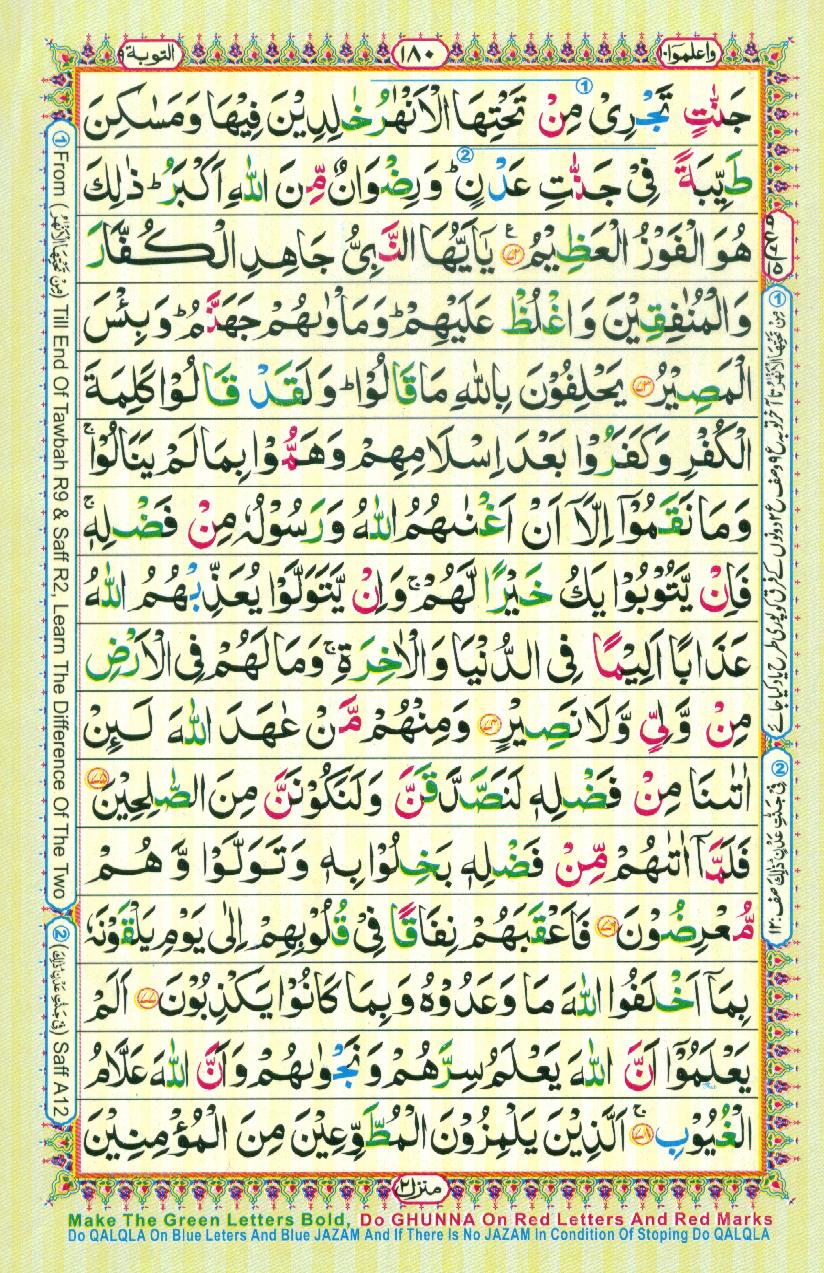 التوبة ٩
١٨٠
واعلموا ١٠
جَنّٰتٍ تَجْرِیْ مِنْ تَحْتِهَا الْاَنْهٰرُ خٰلِدِیْنَ فِیْهَا وَمَسٰكِنَ
طَیِّبَةً فِیْ جَنّٰتِ عَدْنٍ ؕ وَرِضْوَانٌ مِّنَ اللّٰهِ اَكْبَرُ ؕ ذٰلِكَ
هُوَ الْفَوْزُ الْعَظِیْمُ ﴿۷۲﴾ یٰۤاَیُّهَا النَّبِیُّ جَاهِدِ الْكُفَّارَ
وَالْمُنٰفِقِیْنَ وَاغْلُظْ عَلَیْهِمْ ؕ وَمَاْوٰىهُمْ جَهَنَّمُ ؕ وَبِئْسَ
الْمَصِیْرُ ﴿۷۳﴾ یَحْلِفُوْنَ بِاللّٰهِ مَا قَالُوْا ؕ وَلَقَدْ قَالُوْا كَلِمَةَ
الْكُفْرِ وَكَفَرُوْا بَعْدَ اِسْلَامِهِمْ وَهَمُّوْا بِمَا لَمْ یَنَالُوْا ۚ
وَمَا نَقَمُوْۤا اِلَّاۤ اَنْ اَغْنٰىهُمُ اللّٰهُ وَرَسُوْلُهٗ مِنْ فَضْلِهٖ ۚ
فَاِنْ یَّتُوْبُوْا یَكُ خَیْرًا لَّهُمْ ۚ وَاِنْ یَّتَوَلَّوْا یُعَذِّبْهُمُ اللّٰهُ
عَذَابًا اَلِیْمًا فِی الدُّنْیَا وَالْاٰخِرَةِ ۚ وَمَا لَهُمْ فِی الْاَرْضِ
مِنْ وَّلِیٍّ وَّلَا نَصِیْرٍ ﴿۷۴﴾ وَمِنْهُمْ مَّنْ عٰهَدَ اللّٰهَ لَىِٕنْ
اٰتٰىنَا مِنْ فَضْلِهٖ لَنَصَّدَّقَنَّ وَلَنَكُوْنَنَّ مِنَ الصّٰلِحِیْنَ ﴿۷۵﴾
فَلَمَّاۤ اٰتٰىهُمْ مِّنْ فَضْلِهٖ بَخِلُوْا بِهٖ وَتَوَلَّوْا وَّهُمْ
مُّعْرِضُوْنَ ﴿۷۶﴾ فَاَعْقَبَهُمْ نِفَاقًا فِیْ قُلُوْبِهِمْ اِلٰی یَوْمِ یَلْقَوْنَهٗ
بِمَاۤ اَخْلَفُوا اللّٰهَ مَا وَعَدُوْهُ وَبِمَا كَانُوْا یَكْذِبُوْنَ ﴿۷۷﴾ اَلَمْ
یَعْلَمُوْۤا اَنَّ اللّٰهَ یَعْلَمُ سِرَّهُمْ وَنَجْوٰىهُمْ وَاَنَّ اللّٰهَ عَلَّامُ
الْغُیُوْبِ ﴿۷۸﴾ ۚ اَلَّذِیْنَ یَلْمِزُوْنَ الْمُطَّوِّعِیْنَ مِنَ الْمُؤْمِنِیْنَ
① مِنْ تَحْتِهَا الْاَنْهٰرُ تا آخر توبہ ع ۹ وصف ع ۲ دونوں کے فرق کو پوری طرح یاد کیا جائے
② فِیْ جَنّٰتِ عَدْنٍ ؕ ذٰلِكَ صف ۱۲
① From (مِنْ تَحْتِهَا الْاَنْهٰرُ) Till End Of Tawbah R9 & Saff R2, Learn The Difference Of The Two
② (فِیْ جَنّٰتِ عَدْنٍ ؕ ذٰلِكَ) Saff A12
منزل ٢
Make The Green Letters Bold, Do GHUNNA On Red Letters And Red Marks
Do QALQLA On Blue Leters And Blue JAZAM And If There Is No JAZAM in Condition Of Stoping Do QALQLA